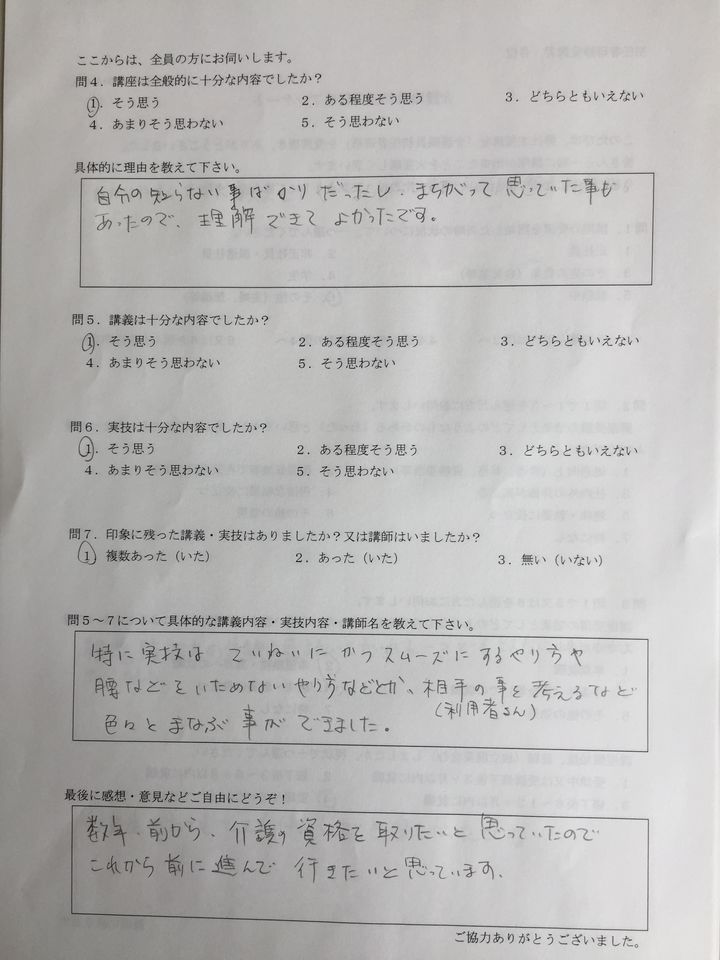 ここからは、全員の方にお伺いします。
問４．講座は全般的に十分な内容でしたか？
１．そう思う　２．ある程度そう思う　３．どちらともいえない
４．あまりそう思わない　５．そう思わない
具体的に理由を教えて下さい。
自分の知らない事ばかりだったし、まちがって思っていた事も
あったので、理解できてよかったです。
問５．講義は十分な内容でしたか？
１．そう思う　２．ある程度そう思う　３．どちらともいえない
４．あまりそう思わない　５．そう思わない
問６．実技は十分な内容でしたか？
１．そう思う　２．ある程度そう思う　３．どちらともいえない
４．あまりそう思わない　５．そう思わない
問７．印象に残った講義・実技はありましたか？又は講師はいましたか？
１　複数あった（いた）　２．あった（いた）　３．無い（いない）
問５～７について具体的な講義内容・実技内容・講師名を教えて下さい。
特に実技は ていねいに かつ スムーズにするやり方や
腰などをいためないやり方などとか、相手の事を考えるなど
（利用者さん）
色々とまなぶ事ができました。
最後に感想・意見などご自由にどうぞ！
数年前から、介護の資格を取りたいと思っていたので
これから前に進んで行きたいと思っています。
ご協力ありがとうございました。